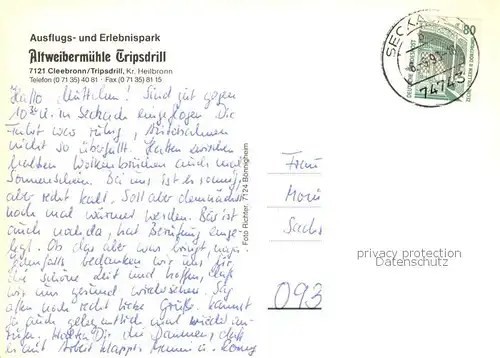 Ausflugs- und Erlebnispark
Altweibermühle Tripsdrill
7121 Cleebronn/Tripsdrill, Kr. Heilbronn
Telefon (0 71 35) 40 81 · Fax (0 71 35) 81 15
Hallo Muttilein! Sind ist gegen
10 in Seckach eingeflogen. Die
Fahrt war ruhig, Autobahnen
nicht so überfüllt. Hatten zwischen
Wolkenbrüchen auch mal
Sonnenschein. Bei uns ist es sonnig,
aber recht kalt, Soll aber demnächst
noch mal wärmer werden. ist
auch noch da, hat Berufung einge-
legt. Ob das aber was bringt,
Jedenfalls bedanken wir uns für
die schöne Zeit und hoffen, daß
wir uns gesund wiedersehen. Sag
allen noch recht liebe Grüße. kannst
ja auch gelegentlich mal wieder an-
rufen. die Daumen, daß
es mit Arbeit klappt. u.
Foto Richter, 7124 Bönnigheim
SECKA
74743
80
DEUTSCHE BUNDESPOST
Frau
Sachs
093
privacy protection
Datenschutz